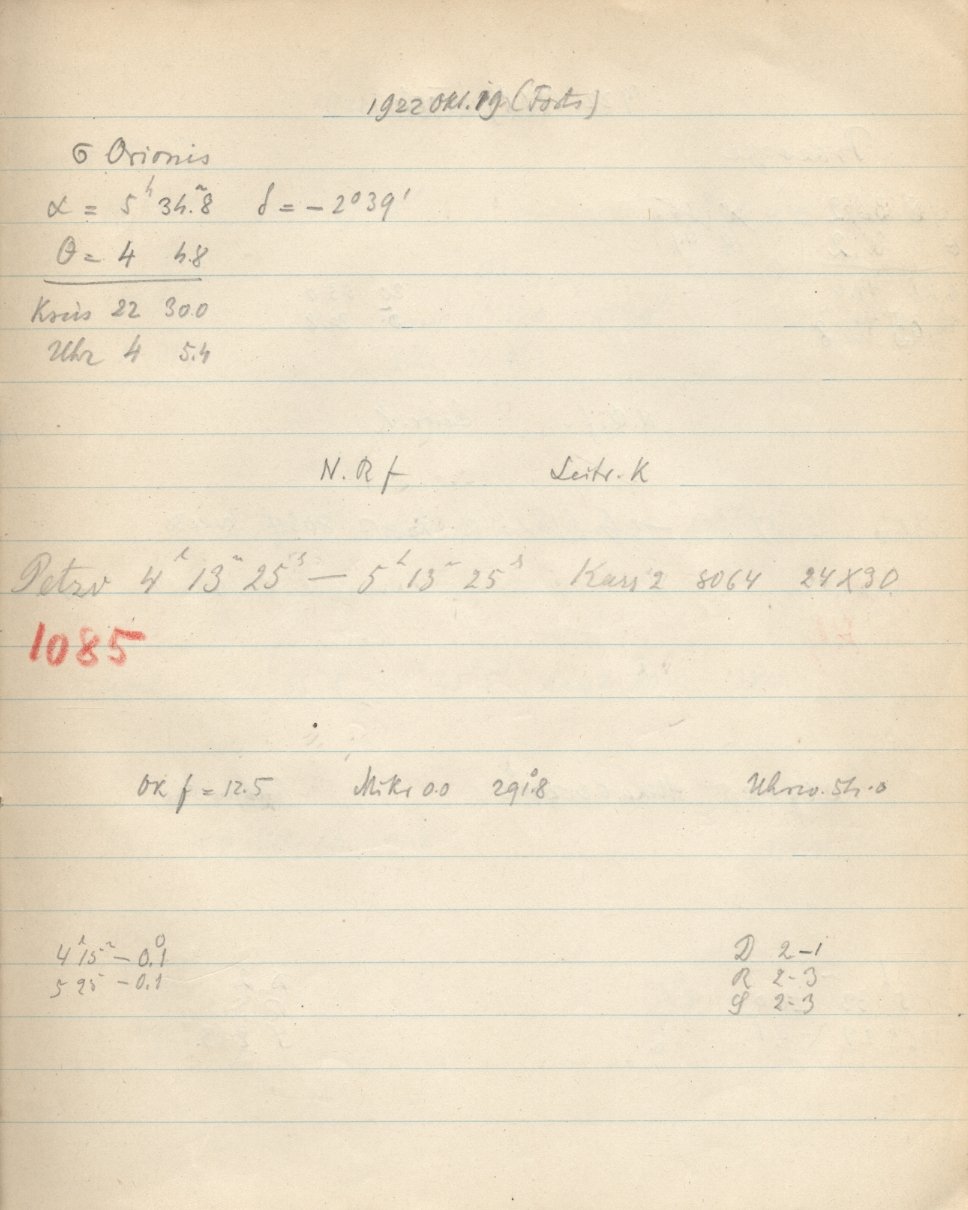 1922 Okt. 19 (Forts)
σ Orionis
α = 5ʰ 34.ᵐ8 δ = − 2°39'
θ = 4 4.8
Kreis 22 30.0
Uhr 4 5.4
N. R f Leitr. K
Petzv 4ʰ 13ᵐ 25ˢ — 5ʰ 13ᵐ 25ˢ Kass 2 8064 24X30
1085
Ok f = 12.5 Mikr 0.0 291.°8 Uhrw. 54.0
4ʰ15ᵐ − 0.°1
5 25 − 0.1
D 2-1
R 2-3
S 2-3